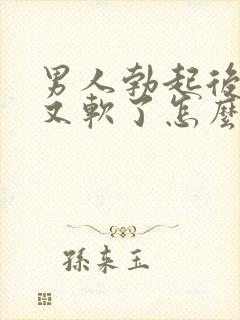 男人勃起後
又軟了怎麼
孫來玉